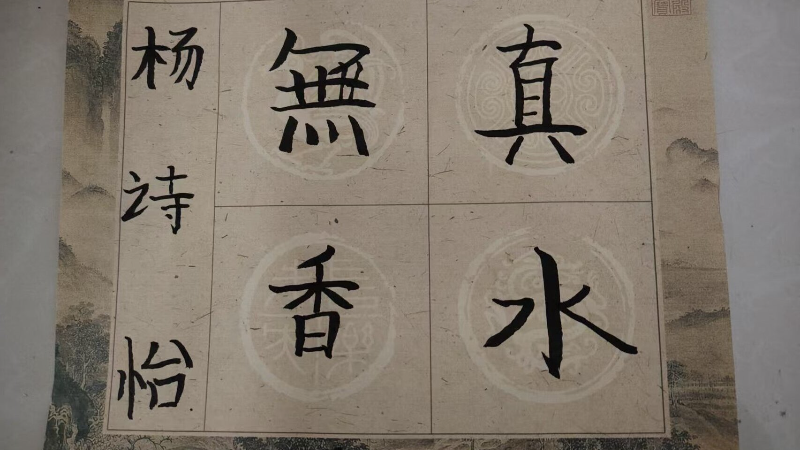 真水
無香
杨诗怡